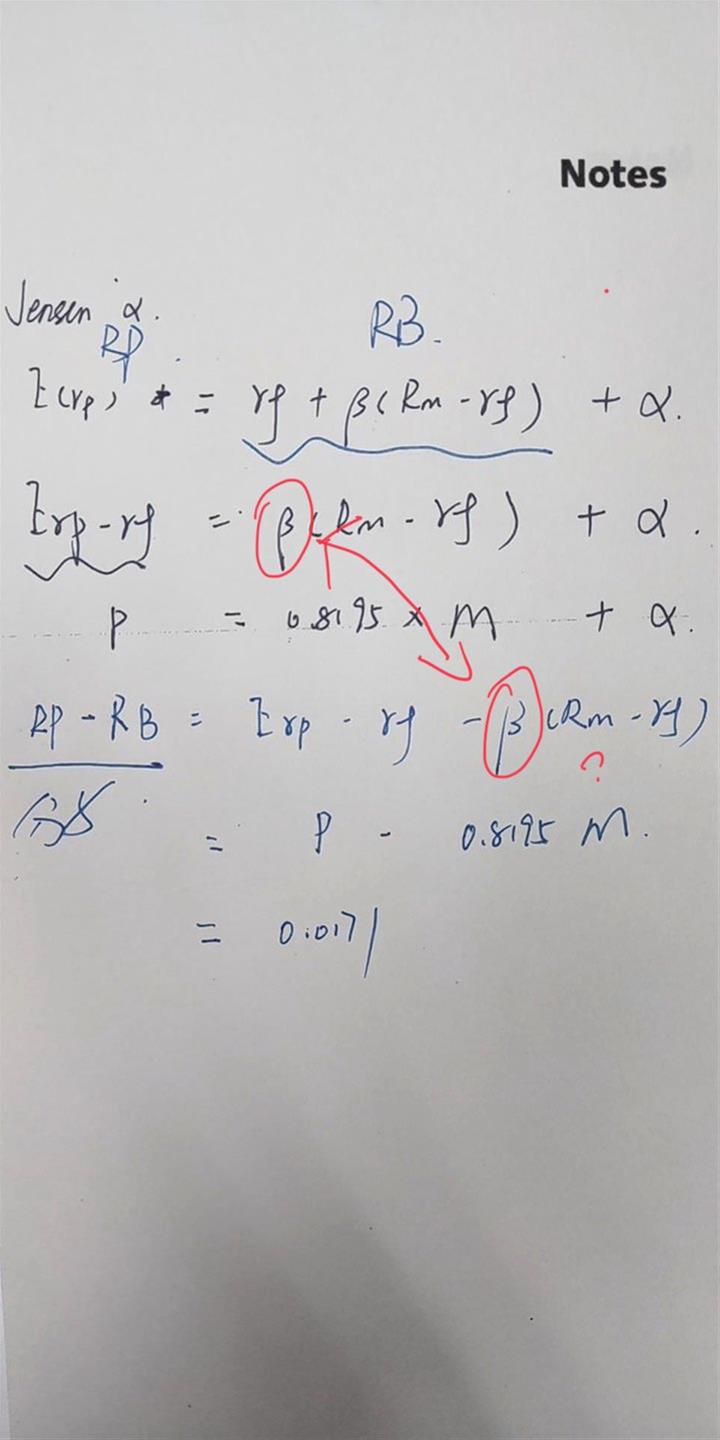 Notes
Jensen α.
RP RB.
E(rp) = rf + β(Rm - rf) + α.
Erp - rf = β(Rm - rf) + α.
P = 0.8195 × M + α.
RP - RB = Erp - rf - β(Rm - rf)
?
= P - 0.8195 M.
= 0.0171